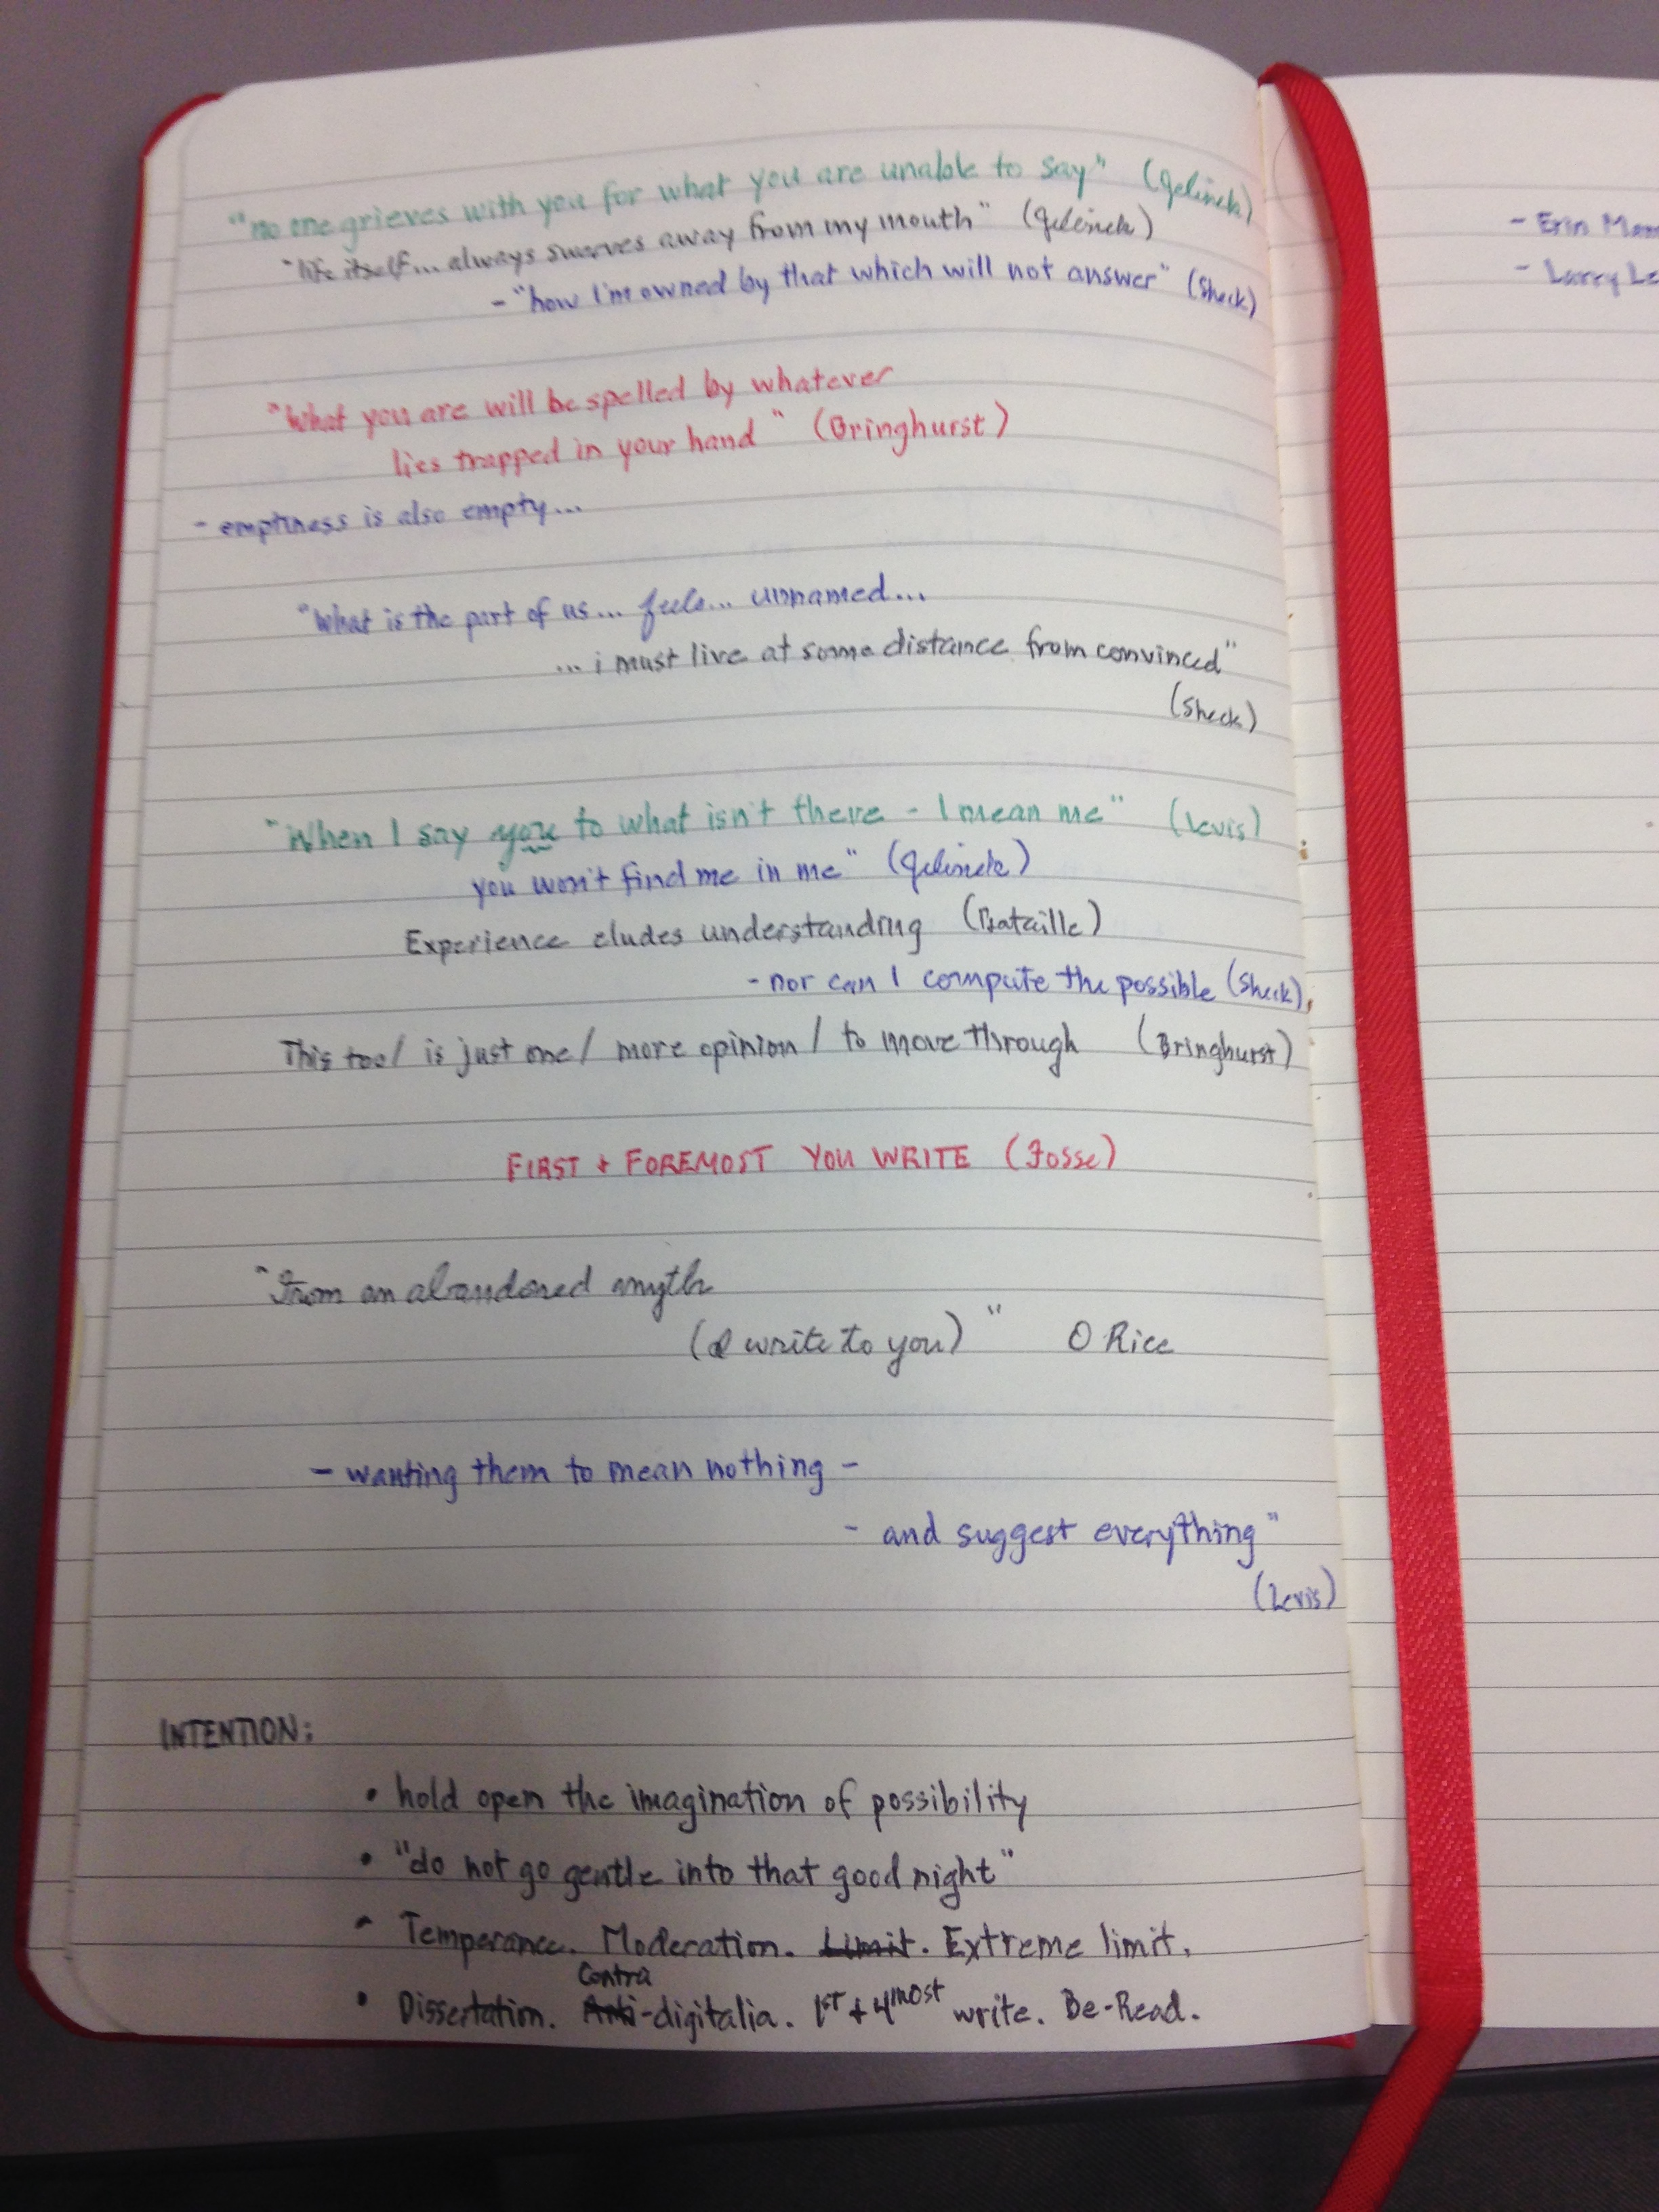 "no one grieves with you for what you are unable to say" (Jelinek)
"life itself... always swerves away from my mouth" (Jelinek)
- "how I'm owned by that which will not answer" (Sheck)
"What you are will be spelled by whatever
lies trapped in your hand" (Bringhurst)
- emptiness is also empty...
"What is the part of us... feels... unnamed...
... i must live at some distance from convinced"
(Sheck)
"When I say you to what isn't there - I mean me" (Levis)
you won't find me in me" (Jelinek)
Experience eludes understanding (Bataille)
- nor can I compute the possible (Sheck)
This too/ is just one/ more opinion/ to move through (Bringhurst)
FIRST + FOREMOST YOU WRITE (Fosse)
"From an abandoned myth
(I write to you)" O Rice
- wanting them to mean nothing -
- and suggest everything"
(Levis)
INTENTION:
• hold open the imagination of possibility
• "do not go gentle into that good night"
• Temperance. Moderation. Limit. Extreme limit.
Contra
• Dissertation. Anti-digitalia. 1st + 4most write. Be-Read.
- Erin
- Larry